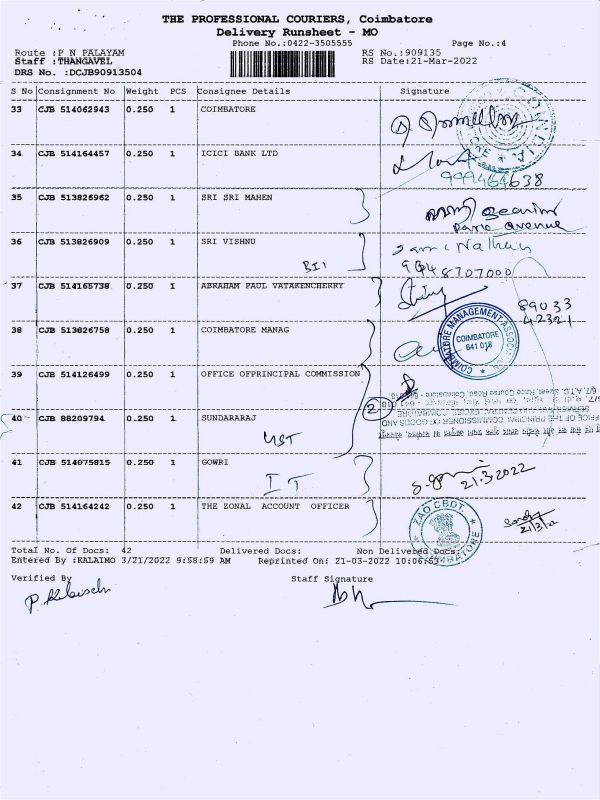 THE PROFESSIONAL COURIERS, Coimbatore
Delivery Runsheet - MO
Phone No.:0422-3505555 Page No.:4
Route :P N PALAYAM RS No.:909135
Staff :THANGAVEL RS Date:21-Mar-2022
DRS No. :DCJB90913504
S No Consignment No Weight PCS Consignee Details Signature
33 CJB 514062943 0.250 1 COIMBATORE
34 CJB 514164457 0.250 1 ICICI BANK LTD
35 CJB 513826962 0.250 1 SRI SRI MAHEN
avenue
36 CJB 513826909 0.250 1 SRI VISHNU
9048707000
37 CJB 514165738 0.250 1 ABRAHAM PAUL VATAKENCHERRY
89033
42321
38 CJB 513826758 0.250 1 COIMBATORE MANAG
COIMBATORE MANAGEMENT ASSOCIATION
COIMBATORE
641 018
39 CJB 514126499 0.250 1 OFFICE OFPRINCIPAL COMMISSION
2
40 CJB 88209794 0.250 1 SUNDARARAJ
41 CJB 514075815 0.250 1 GOWRI
IT
21.3.2022
42 CJB 514164242 0.250 1 THE ZONAL ACCOUNT OFFICER
ZAO CBDT
COIMBATORE
21/3/22
Total No. Of Docs: 42 Delivered Docs: Non Delivered Docs:
Entered By :KALAIMO 3/21/2022 9:58:59 AM Reprinted On: 21-03-2022 10:06:53
Verified By Staff Signature